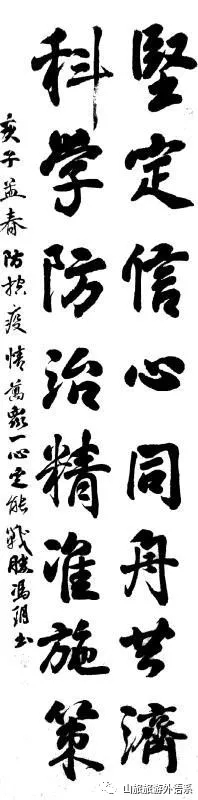 堅定信心同舟共濟
科学防治精准施策
亥子孟春防控疫情萬眾一心定能戰勝馮翔书
山旅旅游外语系